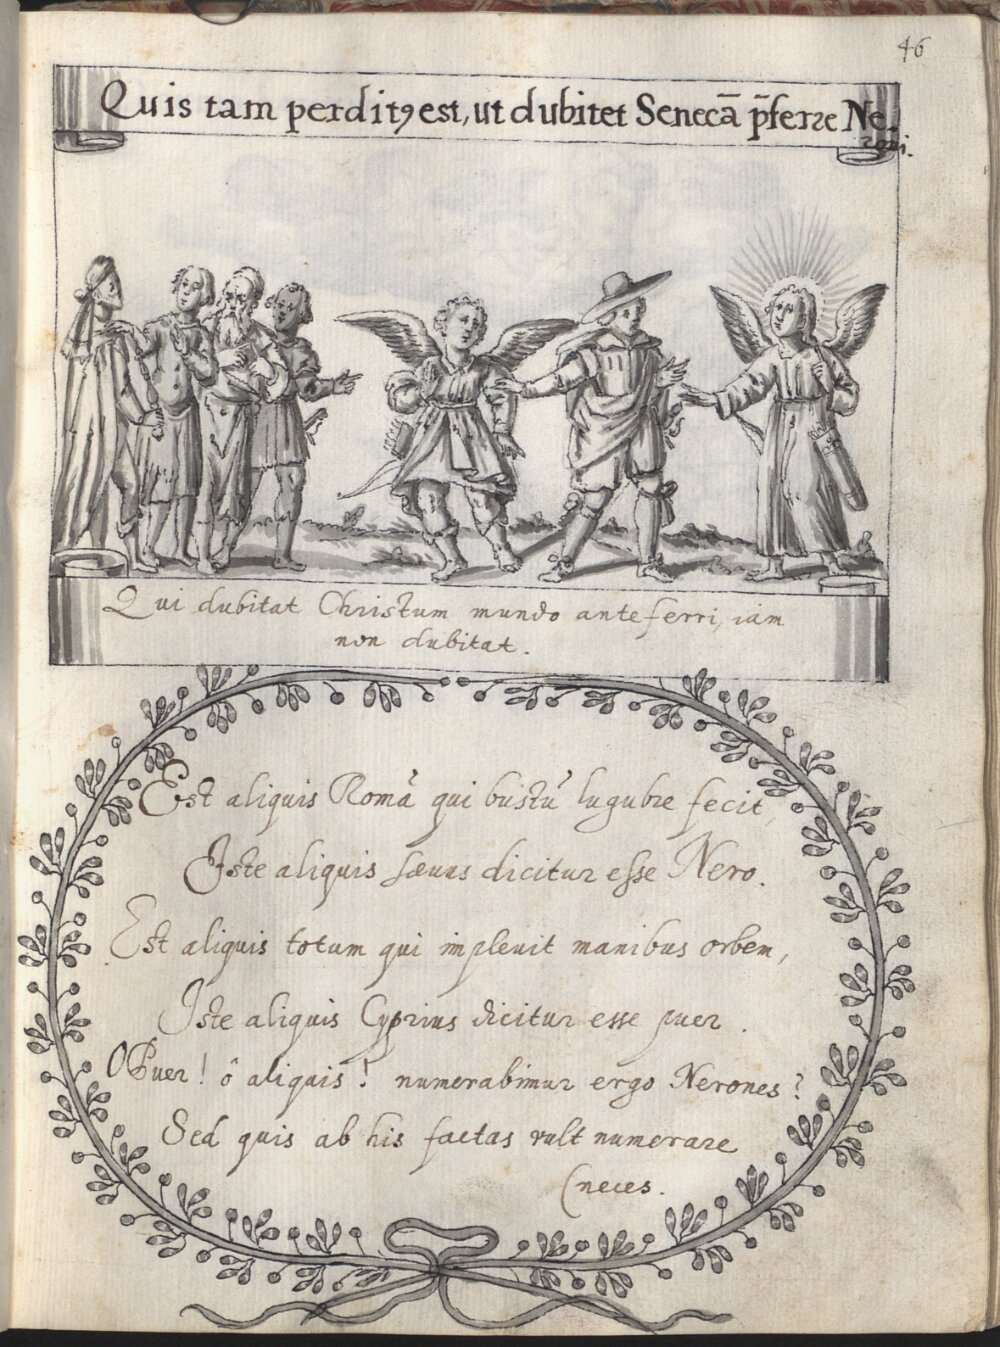 46
Quis tam perditꝰ est, ut dubitet Senecā p̄ferre Ne-
roni.
Qui dubitat Christum mundo anteferri, iam
non dubitat.
Est aliquis Romā qui bustū lugubre fecit,
Iste aliquis sæuus dicitur esse Nero.
Est aliquis totum qui impleuit manibus orbem,
Iste aliquis Cyprius dicitur esse puer.
O Puer! ô aliquis! numerabimur ergo Nerones?
Sed quis ab his factas vult numerare
(neces.